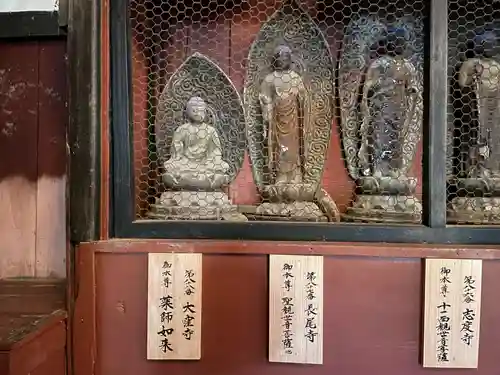 第八六番 志度寺
御本尊 十一面観世音菩薩
第八七番 長尾寺
御本尊 聖観世音菩薩
第八八番 大窪寺
御本尊 薬師如来